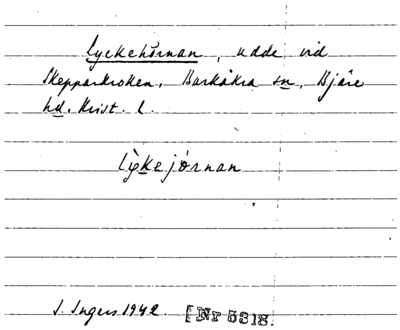 Lyckehörnan, udde vid
Skepparkroken, Barkåkra sn, Bjäre
hd. Krist. l.
lỳkejörnan
I. Ingers 1942. [Nr 5318.